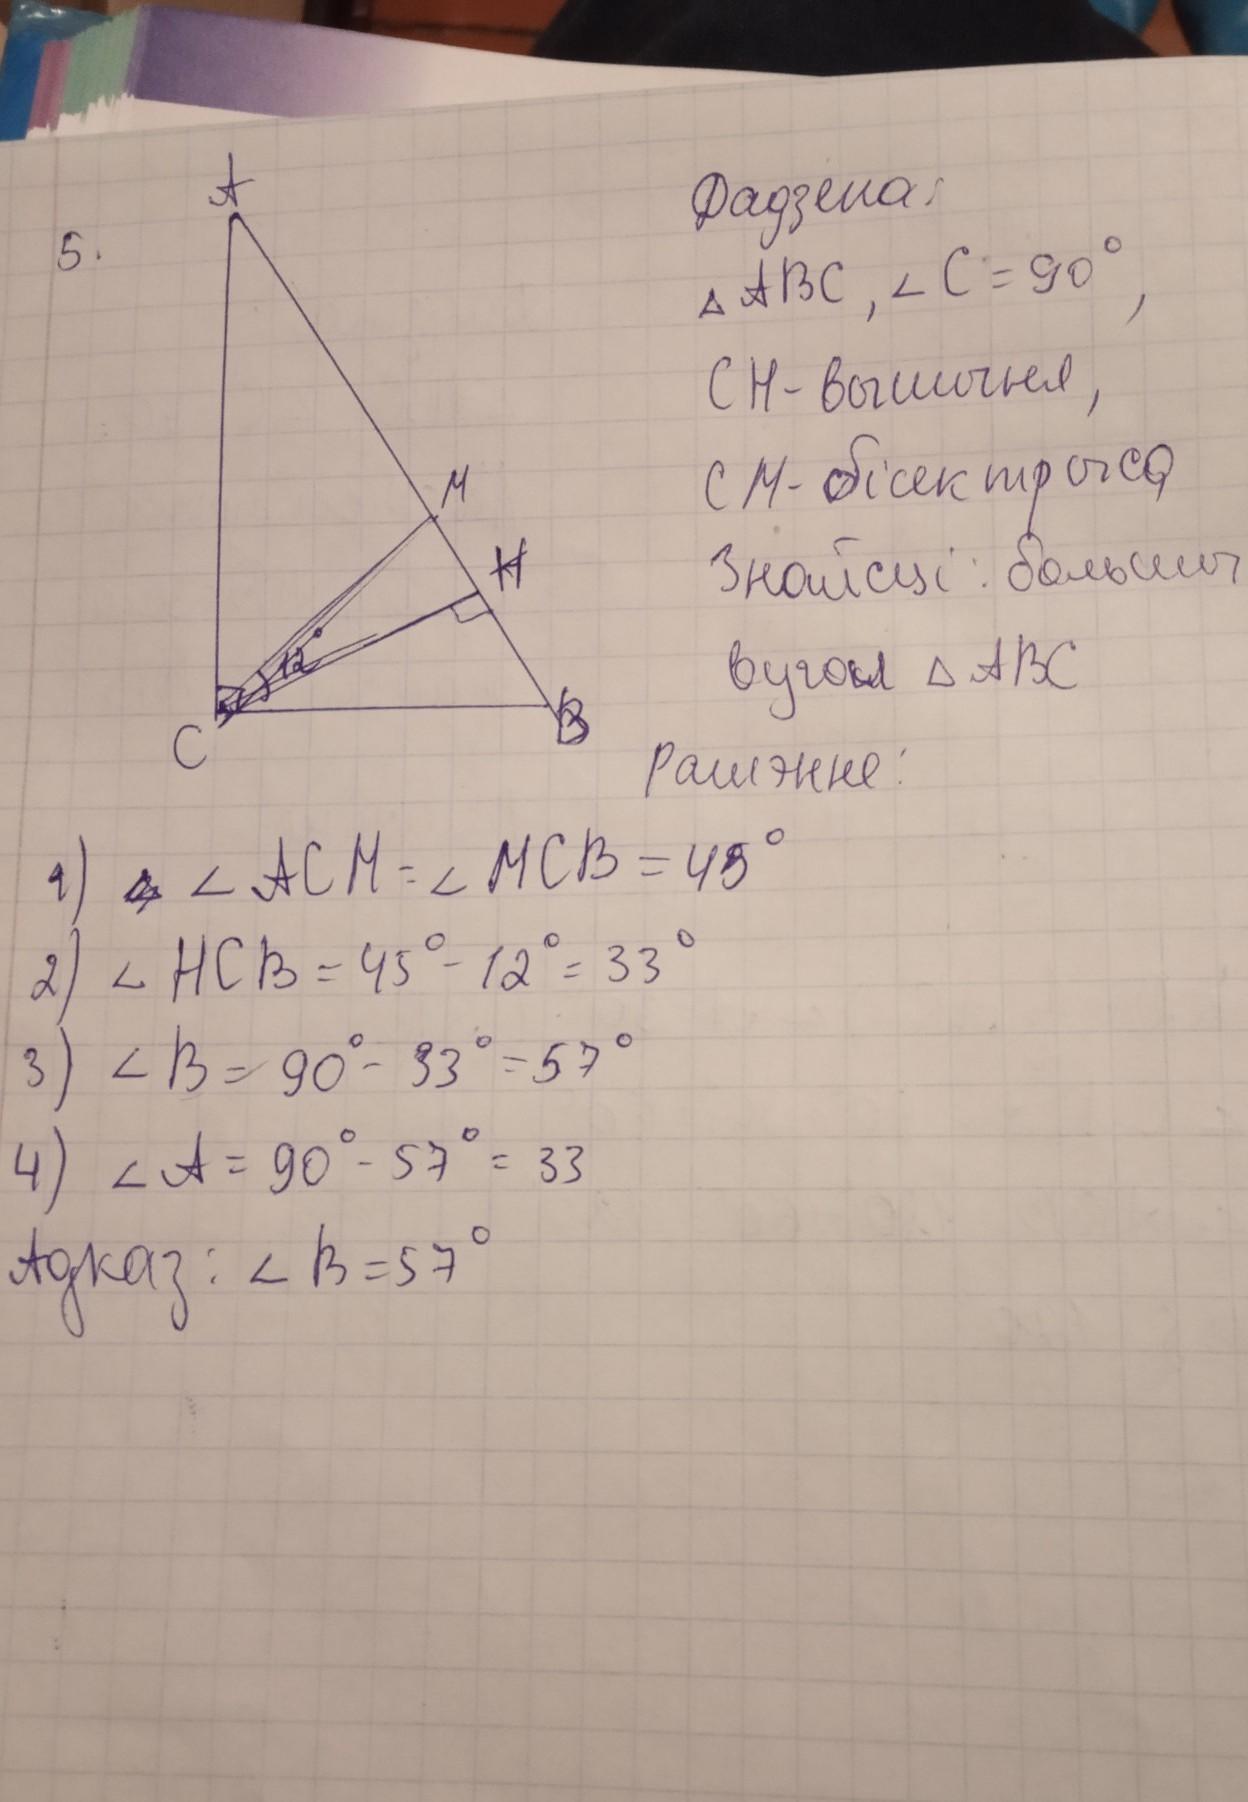 5.
A
M
H
12
C
B
Дадзена:
△ABC, ∠C = 90°,
CH - вышыня,
CM - бісектрыса
Знайсці: большы
вугал △ABC
Рашэнне:
1) ∠ACM = ∠MCB = 45°
2) ∠HCB = 45° - 12° = 33°
3) ∠B = 90° - 33° = 57°
4) ∠A = 90° - 57° = 33
Адказ: ∠B = 57°